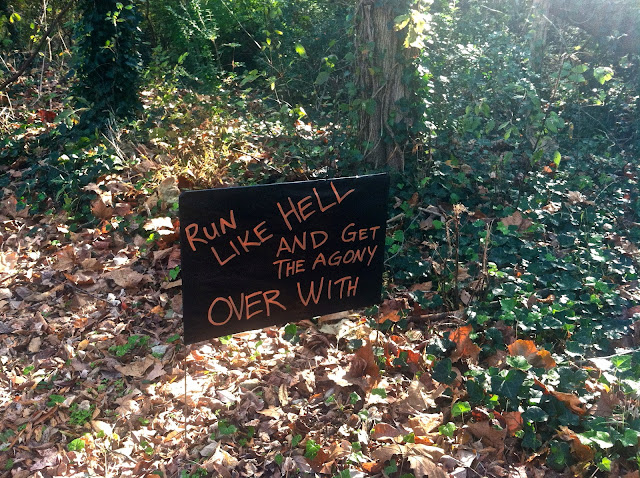 RUN
LIKE HELL
AND GET
THE AGONY
OVER WITH